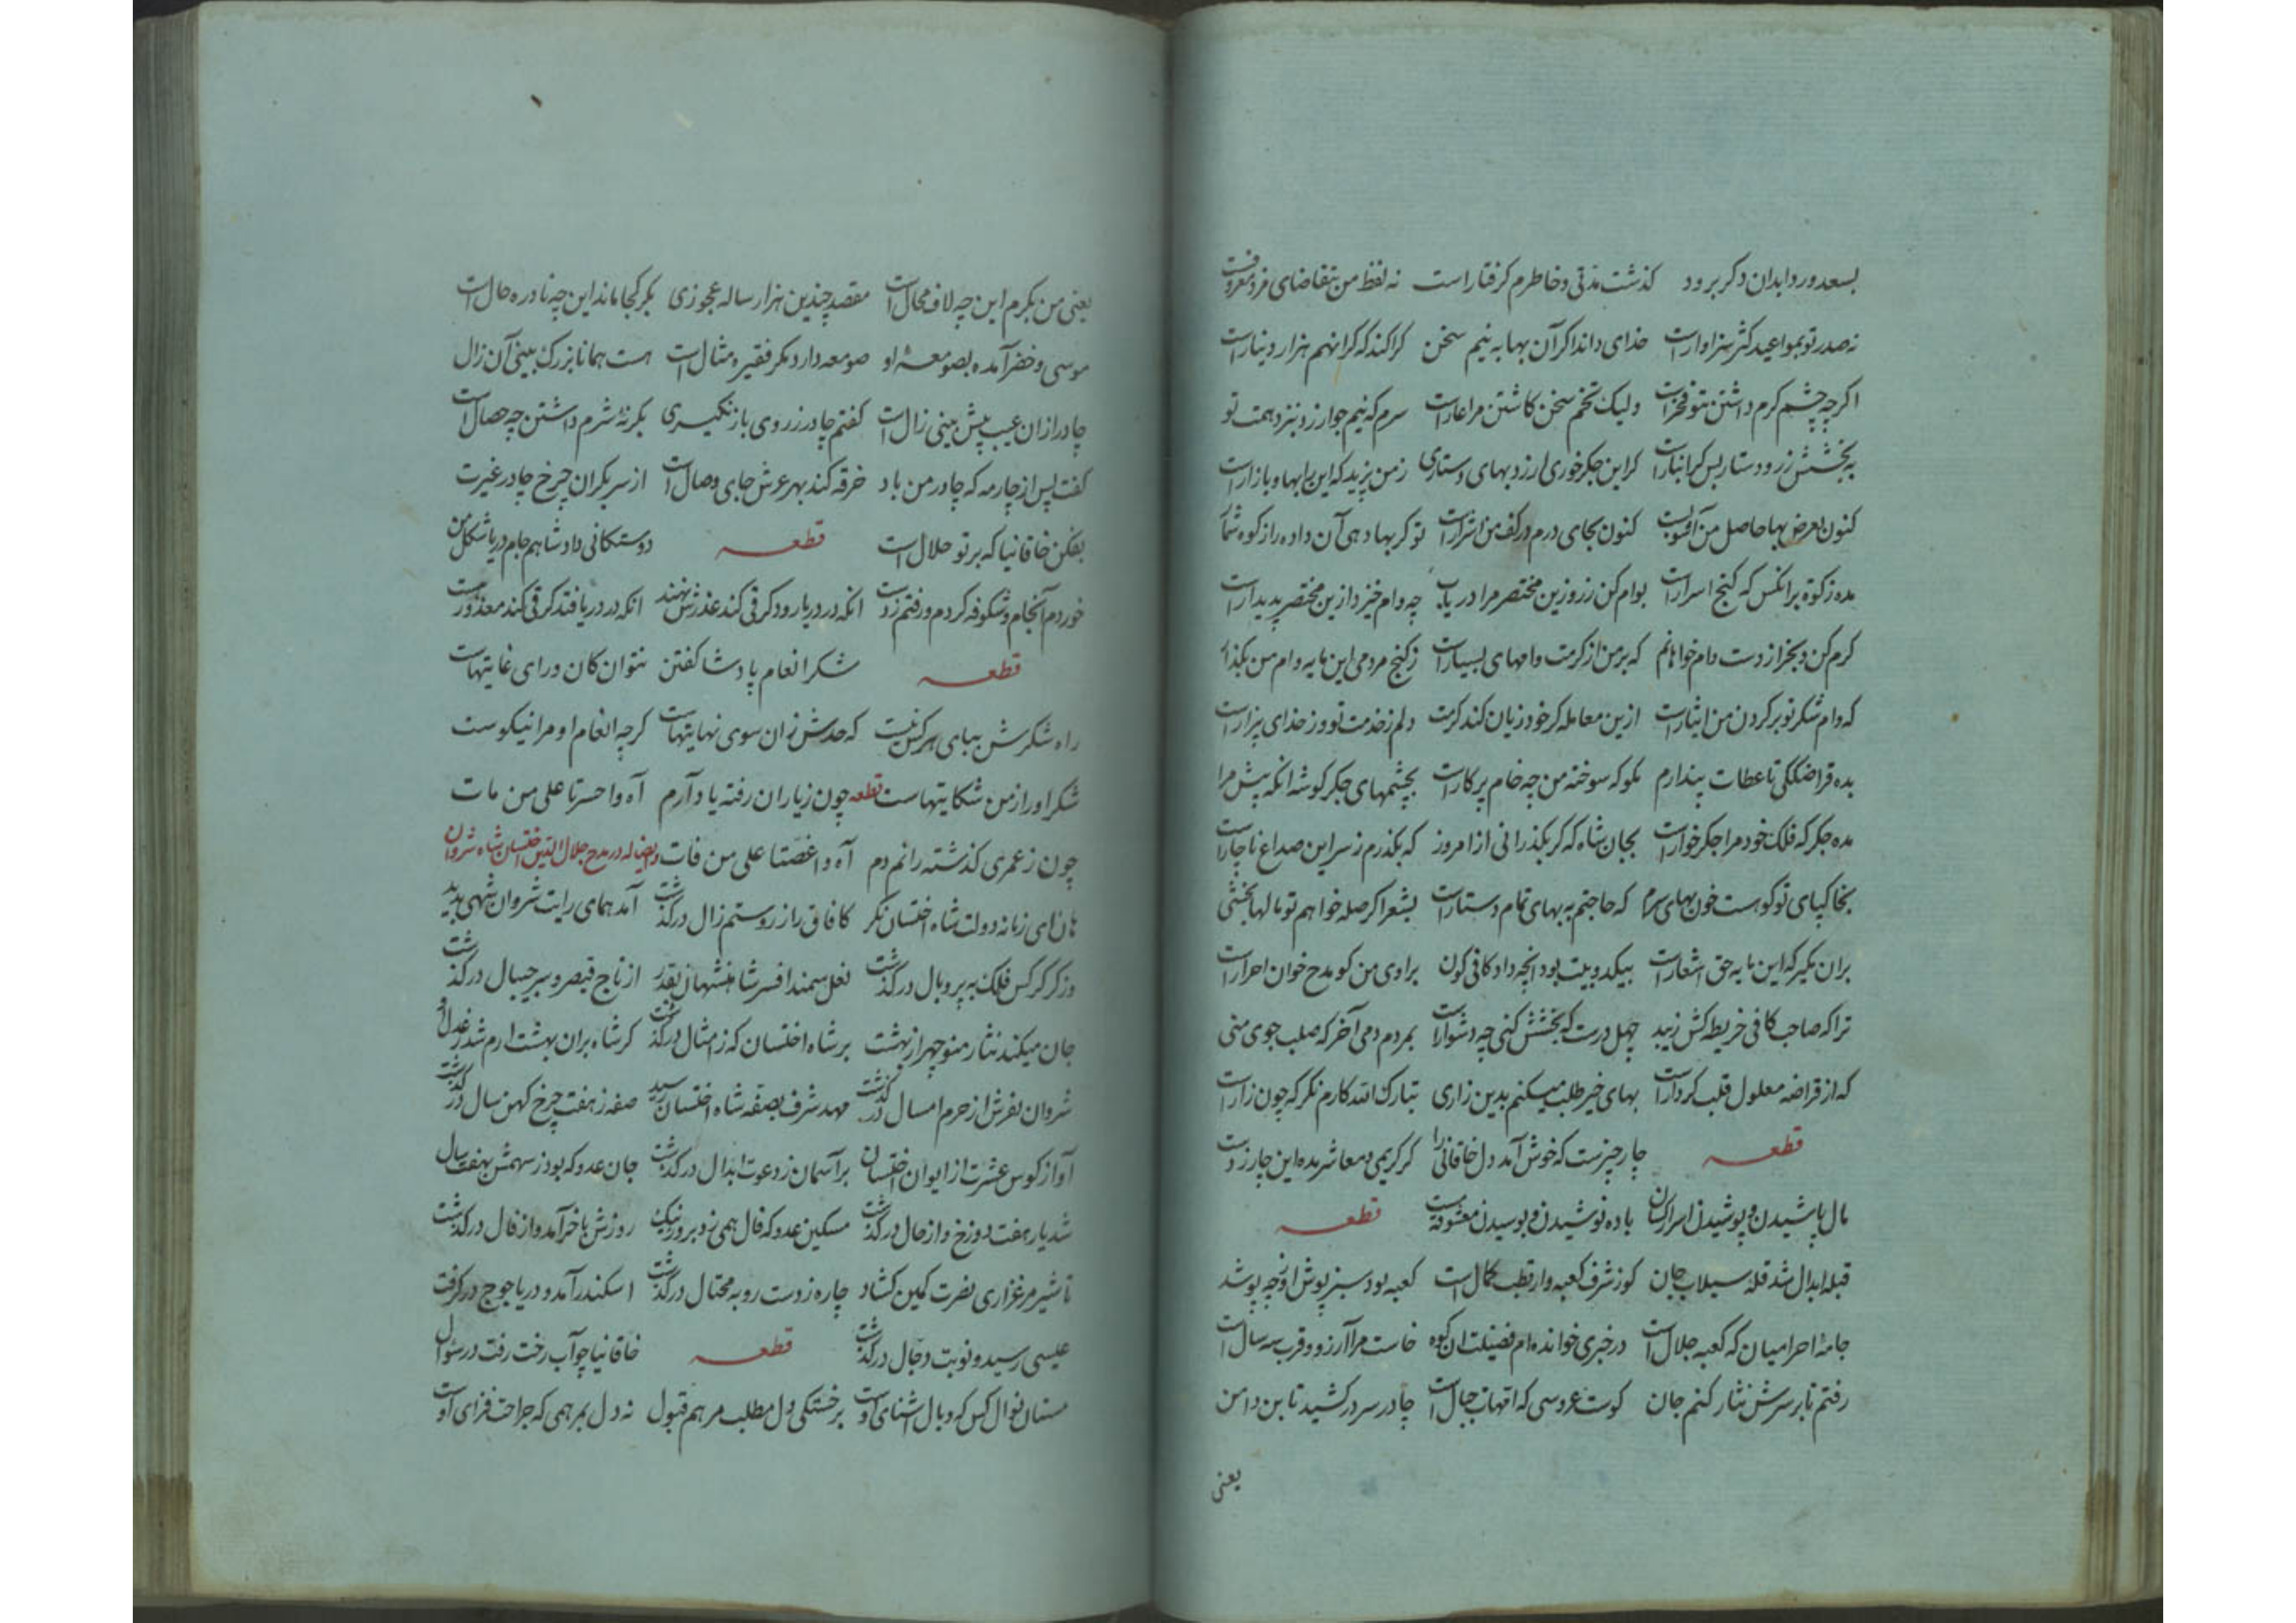 بسعد ورد ابدان دکر برود کذشت مدتی و خاطرم کرفتار است نه لفظ من بتقاضای فرد معروفست
نه صدر تو بمواعید کثر سزاوار است خدای داند اکر آن بها به نیم سخن کرا کند که کرانهم هزار دینار است
اکرچه چشم کرم داشتن بتو فخر است ولیک تخم سخن کاشتن مرا عار است سرم که نیم جو ارزد بنزد همت تو
به بخشش زر و دستار بس کرانبار است کر این جکر خوری ارزد بهای دستاری ز من بزید که این را بها و بازار است
کنون بعرض بها حاصل من آفسوسیست کنون بجای درم در کف من اثرار است تو کر بها دهی آن داده را زکوة شمار
مده زکوة بر انکس که کنج اسرار است بوام کن زر و زین مختصر مرا دریاب چه وام خیزد ازین مختصر پدیدار است
کرم کن و بخر از دست وام خواهانم که بر من از کرمت وامهای بسیار است ز کنج مردمی این مایه وام من بکذار
که وام شکر تو بر کردن من ایثار است ازین معامله کر خود زیان کند کرمت دلم ز خدمت تو وز خدای بیزار است
بده قراضککی تا عطات پندارم مکو که سوخته من چه خام پرکار است بچشمهای جکر کوشه انکه پیش مرا
مده جکر که فلک خود مرا جکر خوار است بجان شاه که کر بکذرانی از امروز که بکذرم ز سر این صداع ناچار است
بخاکپای تو کوهست خون بهای سرم که حاجتم به بهای تمام دستار است بشعر اکر صله خواهم تو مالها بخشی
بران مکیر که این مایه حق اشعار است بیکدو بیت بود انچه داد کافی کون براوی من کو مدح خوان احرار است
ترا که صاحب کافی خریطه کش زیبد چهل درست که بخشش کنی چه دشوار است بمردم دمی آخر که صلب جوی منی
که از قراضه معلول قلب کردار است بهای خیر طلب میکنم بدین زاری تبارک الله کارم نکر که چون زار است
قطعه چار چیزست که خوش آمد دل خاقانی را کر کریمی و معاشر مده این چار ز دست
مال پاشیدن و پوشیدن اسرار کسان باده نوشیدن و بوسیدن معشوقه مست قطعه
قبله ابدال شد قله سیلاب جان کوز شرف کعبه وار قطب کمال است کعبه بود سبز پوش او ز چه پوشد
جامه احرامیان که کعبه جلال است در خبری خوانده ام فضیلت ان کوه خاست مرا آرزو و قرب سه سال است
رفتم تا بر سرش نثار کنم جان کوست عروسی که امهات جبال است چادر سر در کشید تا بن دامن
یعنی
یعنی من بکرم این چه لاف محال است مقصد چندین هزار ساله عجوزی بکر کجا ماند این چه نادره حال است
موسی و خضر آمده بصومعه او صومعه دارد مکر فقیره مثال است هست همانا بزرک بینی آن زال
چادر ازان عیب پیش بینی زال است کفتم چادر ز روی باز نکیری بکر نه شرم داشتن چه خصال است
کفت پس از چار مه که چادر من باد خرقه کند بهر عرش جای وصال است از سر بکران چرخ چادر غیرت
بفکن خاقانیا که بر تو حلال است قطعه دوستکانی داد شاهم جام دریا شکل من
خوردم آنجام و شکوفه کردم و رفتم ز دست انکه در دریا رود کرقی کند عذرش نهند انکه در دریا فتد کرقی کند معذور هست
قطعه شکر انعام پادشا کفتن نتوان کان ورای غایتهاست
راه شکرش بپای هر کس نیست که حدش زان سوی نهایتهاست کرچه انعام او مرا نیکوست
شکر او را ز من شکایتهاست قطعه چون ز یاران رفته یاد آرم آه وا حسرتا علی من مات
چون ز عمری کذشته رانم دم آه وا غصّتا علی من فات و ایضا له در مدح جلال الدین اخستان شاه شروان
هان ای زمانه دولت شاه اخستان نکر کافاق را ز روستم زال درکذشت آمد همای رایت شروان شهی پدید
وز کرکس فلک به پر و بال درکذشت نعل سمند افسر شاهنشهان بقدر از تاج قیصر و سر جیبال درکذشت
جان میکند نثار منوچهر از بهشت بر شاه اخستان که ز امثال درکذشت کر شاه بران بهشت ارم شد ز عدل او
شروان بفرش از حرم امسال درکذشت مهد شرف بصفه شاه اخستان رسید صفه ز هفت چرخ کهن سال درکذشت
آواز کوس عشرت از ایوان اخستان بر آسمان ز دعوت ابدال درکذشت جان عدو که بود ز سهمش بهفت سال
شد یار هفت دوزخ و از حال درکذشت مسکین عدو که فال همی زد بروز نیک روزش باخر آمد و از فال درکذشت
تا شیر مرغزاری نصرت کمین کشاد چاره ز دست روبه محتال درکذشت اسکندر آمد و در یاجوج درکرفت
عیسی رسید و نوبت دجال درکذشت قطعه خاقانیا چو آب رخت رفت در سئوال
مستان نوال کس که وبال آشنای اوست بر خستکی دل مطلب مرهم قبول نه دل بمرهمی که جراحت فزای اوست